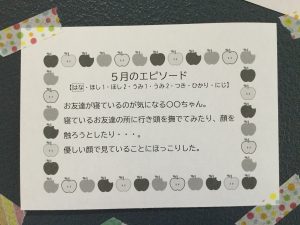 5月のエピソード
【はな・ほし1・ほし2・うみ1・うみ2・つき・ひかり・にじ】
お友達が寝ているのが気になる〇〇ちゃん。
寝ているお友達の所に行き頭を撫でてみたり、顔を
触ろうとしたり・・・。
優しい顔で見ていることにほっこりした。